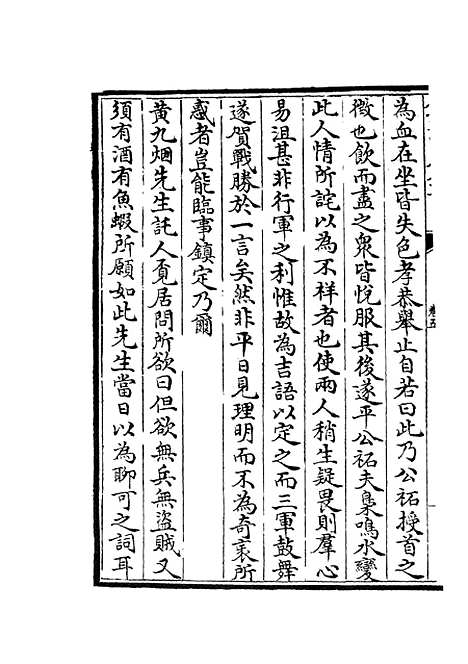 為血在坐皆失色孝恭舉止自若曰此乃公祏授首之
徴也飲而盡之衆皆悅服其後遂平公祏夫梟鳴水變
此人情所詫以為不祥者也使兩人稍生疑畏則羣心
易沮甚非行軍之利惟故為吉語以定之而三軍鼓舞
遂賀戰勝於一言矣然非平日見理明而不為奇衺所
惑者豈能臨事鎮定乃爾
黄九烟先生託人覔居問所欲曰但欲無兵無盜賊又
須有酒有魚蝦所願如此先生當日以為聊可之詞耳
卷五